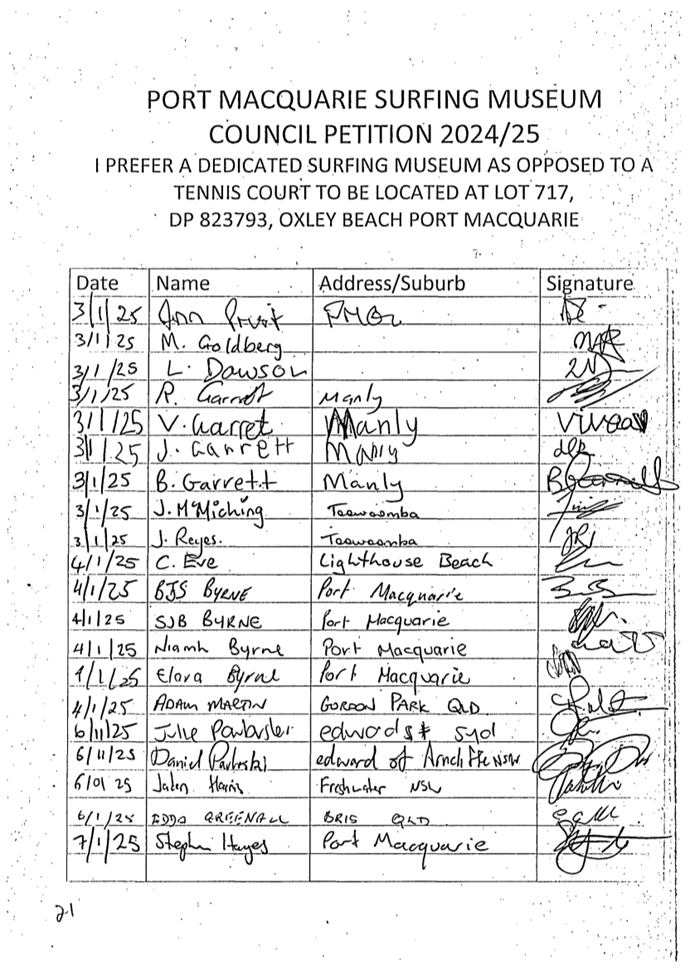 PORT MACQUARIE SURFING MUSEUM
COUNCIL PETITION 2024/25
I PREFER A DEDICATED SURFING MUSEUM AS OPPOSED TO A
TENNIS COURT TO BE LOCATED AT LOT 717,
DP 823793, OXLEY BEACH PORT MACQUARIE
Date Name Address/Suburb Signature
3/1/25 Ann
3/1/25 M. Goldberg
3/1/25 L. Dawson
3/1/25 R. Manly
3/1/25 V. Garret Manly
3/1/25 J. Garrett Manly
3/1/25 B. Garrett Manly
3/1/25 J. McMiching Toowoomba
3/1/25 J. Reyes. Toowoomba
4/1/25 C. Eve Lighthouse Beach
4/1/25 BJS BYRNE Port Macquarie
4/1/25 SJB BYRNE Port Macquarie
4/1/25 Niamh Byrne Port Macquarie
4/1/25 Elora Byrne Port Macquarie
4/1/25 ADAM MARTIN GORDON PARK QLD
6/11/25 Julie syd
6/11/25 Daniel edward of NSW
6/01 25 Jaden Harris Freshwater NSW
6/1/25 GREENALL BRIS QLD
7/1/25 Stephen Hayes Port Macquarie
21